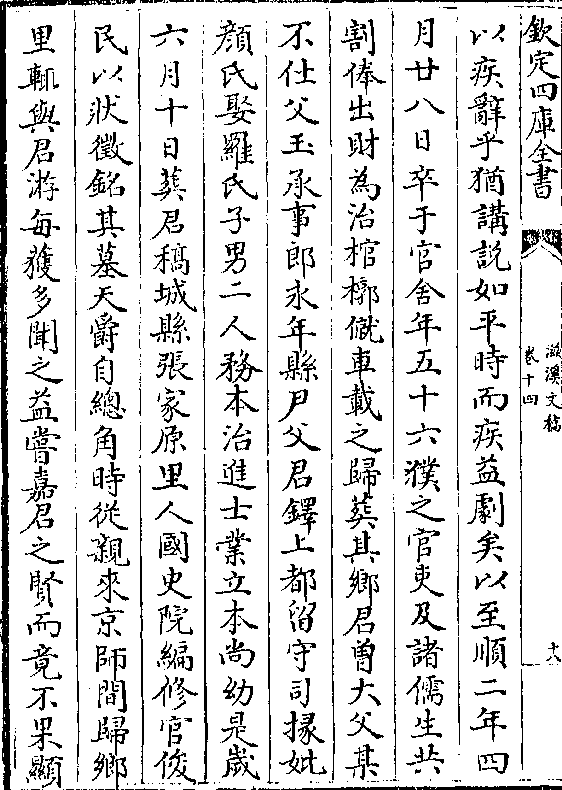 欽定四庫全書
滋溪文稿
卷十四
十八
以疾辭乎猶講說如平時而疾益劇矣以至順二年四
月廿八日卒于官舍年五十六濮之官吏及諸儒生共
割俸出財為治棺槨僦車載之歸葬其鄉君曽大父某
不仕父玉承事郎永年縣尹父君鐸上都留守司掾妣
顔氏娶羅氏子男二人務本治進士業立本尚幼是嵗
六月十日葬君稿城縣張家原里人國史院編修官俊
民以狀徵銘其墓天爵自總角時從親來京師間歸鄉
里輒與君游毎獲多聞之益嘗嘉君之賢而竟不果顯